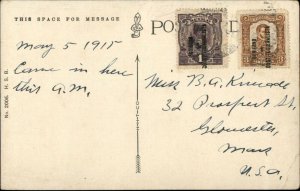 THIS SPACE FOR MESSAGE
POST
May 5 1915
Came in here
this A.M.
Miss B. A. Kincade
32 Prospect St.
Gloucester,
Mass
U.S.A.
No. 2006. H. S. B.
1